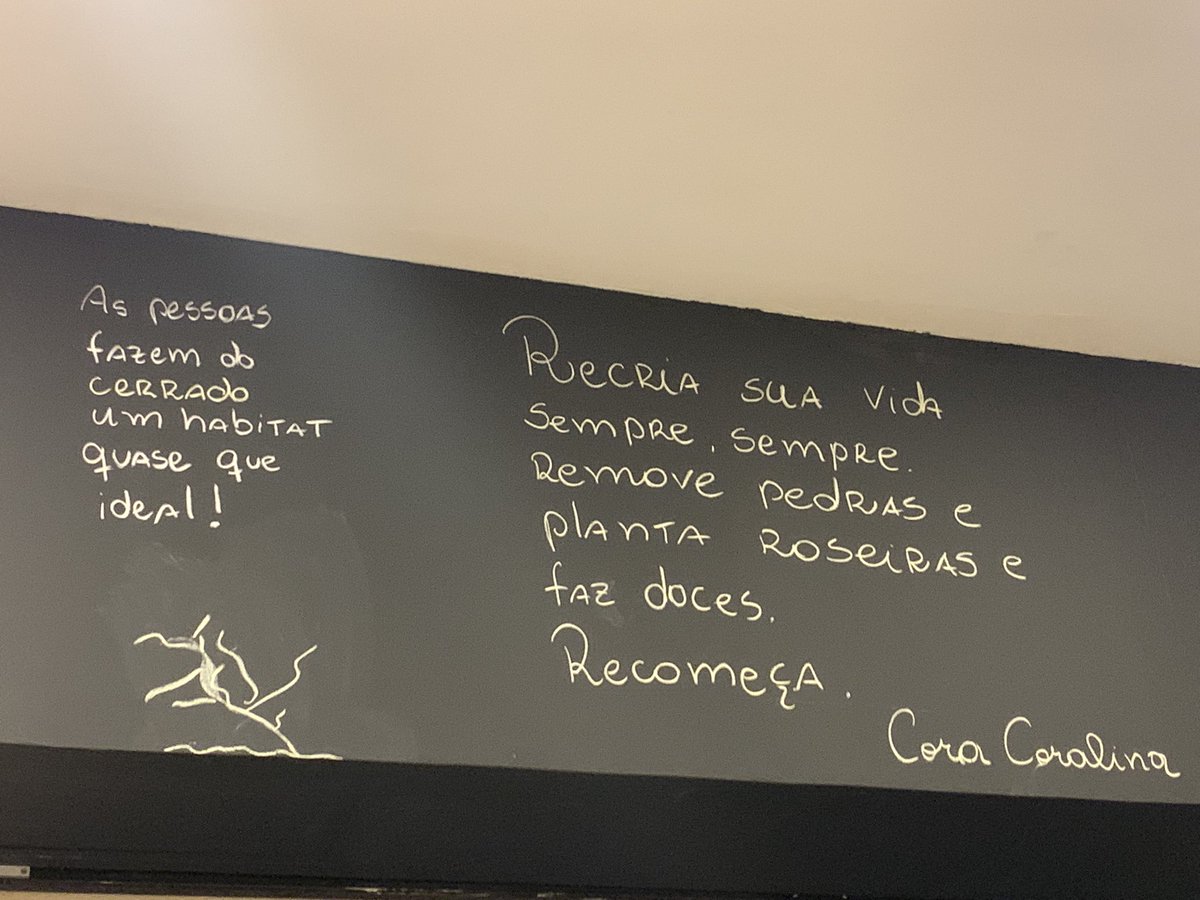 As pessoas
fazem do
cerrado
um habitat
quase que
ideal!
Recria sua vida
sempre, sempre.
Remove pedras e
planta roseiras e
faz doces.
Recomeça.
Cora Coralina